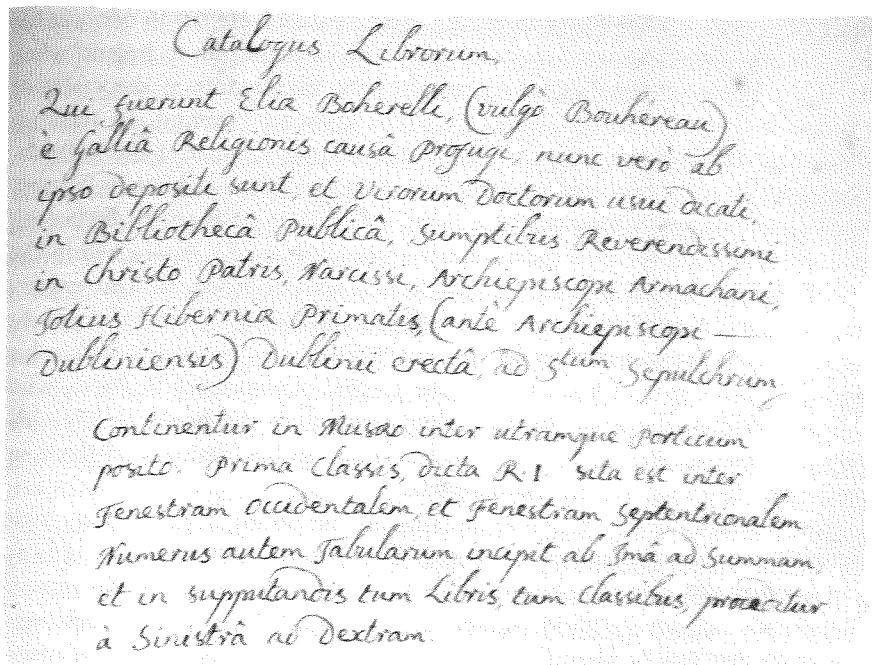 Catalogus Librorum,
Qui fuerunt Eliæ Boherelli, (vulgò Bouhéreau)
è Galliâ Religionis causâ profugi, nunc verò ab
ipso depositi sunt, et Virorum Doctorum usui dicati,
in Bibliothecâ Publicâ, sumptibus Reverendissimi
in Christo Patris, Narcissi, Archiepiscopi Armachani,
Totius Hiberniæ Primatis, (antè Archiepiscopi —
Dubliniensis) Dublinii erectâ, ad Stum Sepulchrum,
Continentur in Musæo inter utramque Porticum
posito. Prima Classis, dicta R.I sita est inter
Fenestram Occidentalem, et Fenestram Septentrionalem
Numerus autem Tabularum incipit ab Imâ ad Summam,
et in supputandis tum Libris, tum Classibus, proceditur
à Sinistrâ ad Dextram.